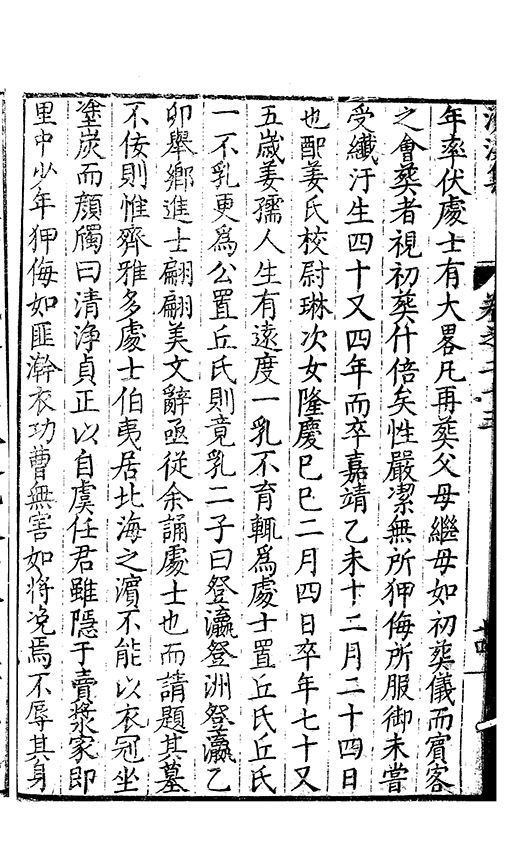 年率伏處士有大畧凡再葬父母繼母如初葬儀而賓客
之會葬者視初葬什倍矣性嚴潔無所狎侮所服御未嘗
受纖汙生四十又四年而卒嘉靖乙未十二月二十四日
也配姜氏校尉琳次女隆慶己巳二月四日卒年七十又
五歲姜孺人生有遠度一乳不育輒為處士置丘氏丘氏
一不乳更為公置丘氏則竟乳二子曰登瀛登洲登瀛乙
卯舉鄉進士翩翩美文辭亟從余誦處士也而請題其墓
不佞則惟齊雅多處士伯夷居北海之濵不能以衣冠坐
塗炭而顔斶曰清浄貞正以自虞任君雖隱于賣漿家即
里中少年狎侮如匪澣衣功曹無害如將浼焉不辱其身